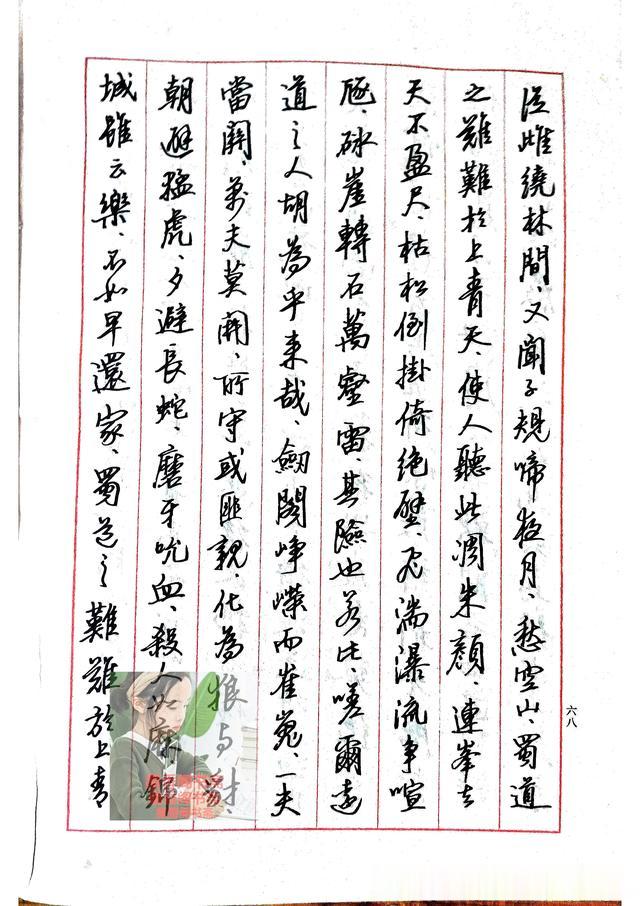 從雌繞林間、又聞子規啼夜月、愁空山、蜀道
之難難於上青天、使人聽此凋朱顏、連峯去
天不盈尺、枯松倒掛倚絕壁、飛湍瀑流爭喧
豗、砯崖轉石萬壑雷、其險也若此、嗟爾遠
道之人胡為乎來哉、劍閣崢嶸而崔嵬、一夫
當關、萬夫莫開、所守或匪親、化為狼与豺、
朝避猛虎、夕避長蛇、磨牙吮血、殺人如麻、錦
城雖云樂、不如早還家、蜀道之難難於上青
六八